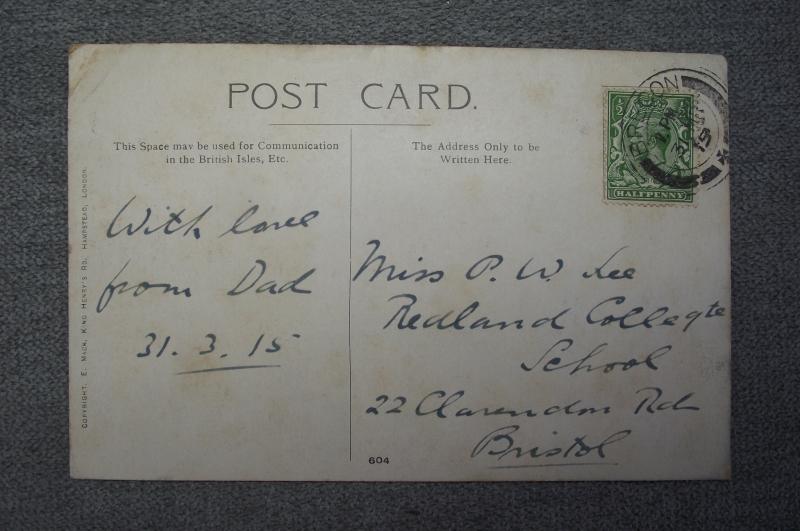 POST CARD.
This Space may be used for Communication
in the British Isles, Etc.
The Address Only to be
Written Here.
½ ½
HALFPENNY
15
With love
from Dad
31.3.15
Miss P. W. Lee
Redland Collegte
School
22 Clarendon Rd
Bristol
604
COPYRIGHT, E. MACK, KING HENRY'S RD, HAMPSTEAD, LONDON.